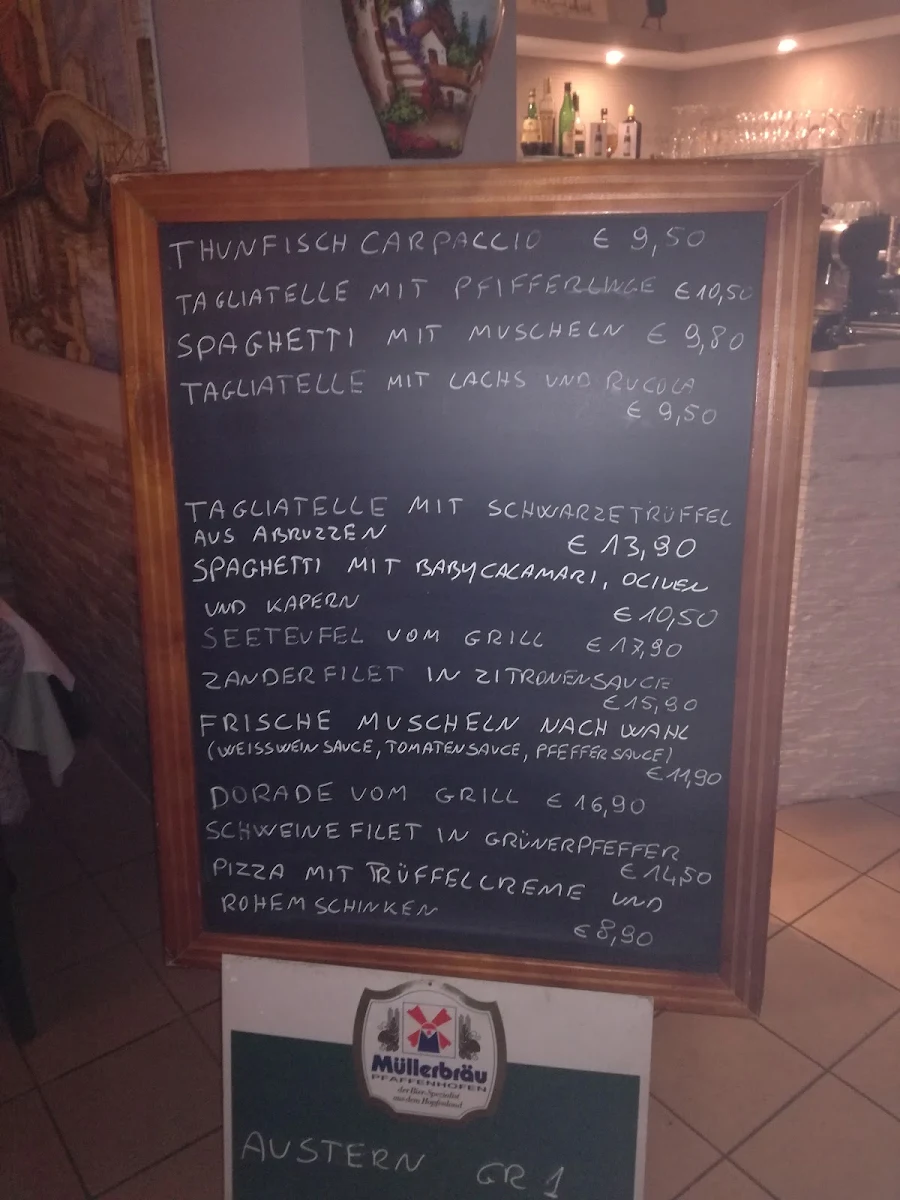 THUNFISCH CARPACCIO € 9,50
TAGLIATELLE MIT PFIFFERLINGE € 10,50
SPAGHETTI MIT MUSCHELN € 9,80
TAGLIATELLE MIT LACHS UND RUCOLA
€ 9,50
TAGLIATELLE MIT SCHWARZE TRÜFFEL
AUS ABRUZZEN € 13,90
SPAGHETTI MIT BABYCALAMARI, OLIVEN
UND KAPERN € 10,50
SEETEUFEL VOM GRILL € 17,90
ZANDERFILET IN ZITRONENSAUCE
€ 15,90
FRISCHE MUSCHELN NACH WAHL
(WEISSWEIN SAUCE, TOMATENSAUCE, PFEFFERSAUCE)
€ 11,90
DORADE VOM GRILL € 16,90
SCHWEINEFILET IN GRÜNERPFEFFER
€ 14,50
PIZZA MIT TRÜFFELCREME UND
ROHEM SCHINKEN
€ 8,90
Müllerbräu
PFAFFENHOFEN
der Bier-Spezialist
aus dem Hopfenland
AUSTERN GR 1